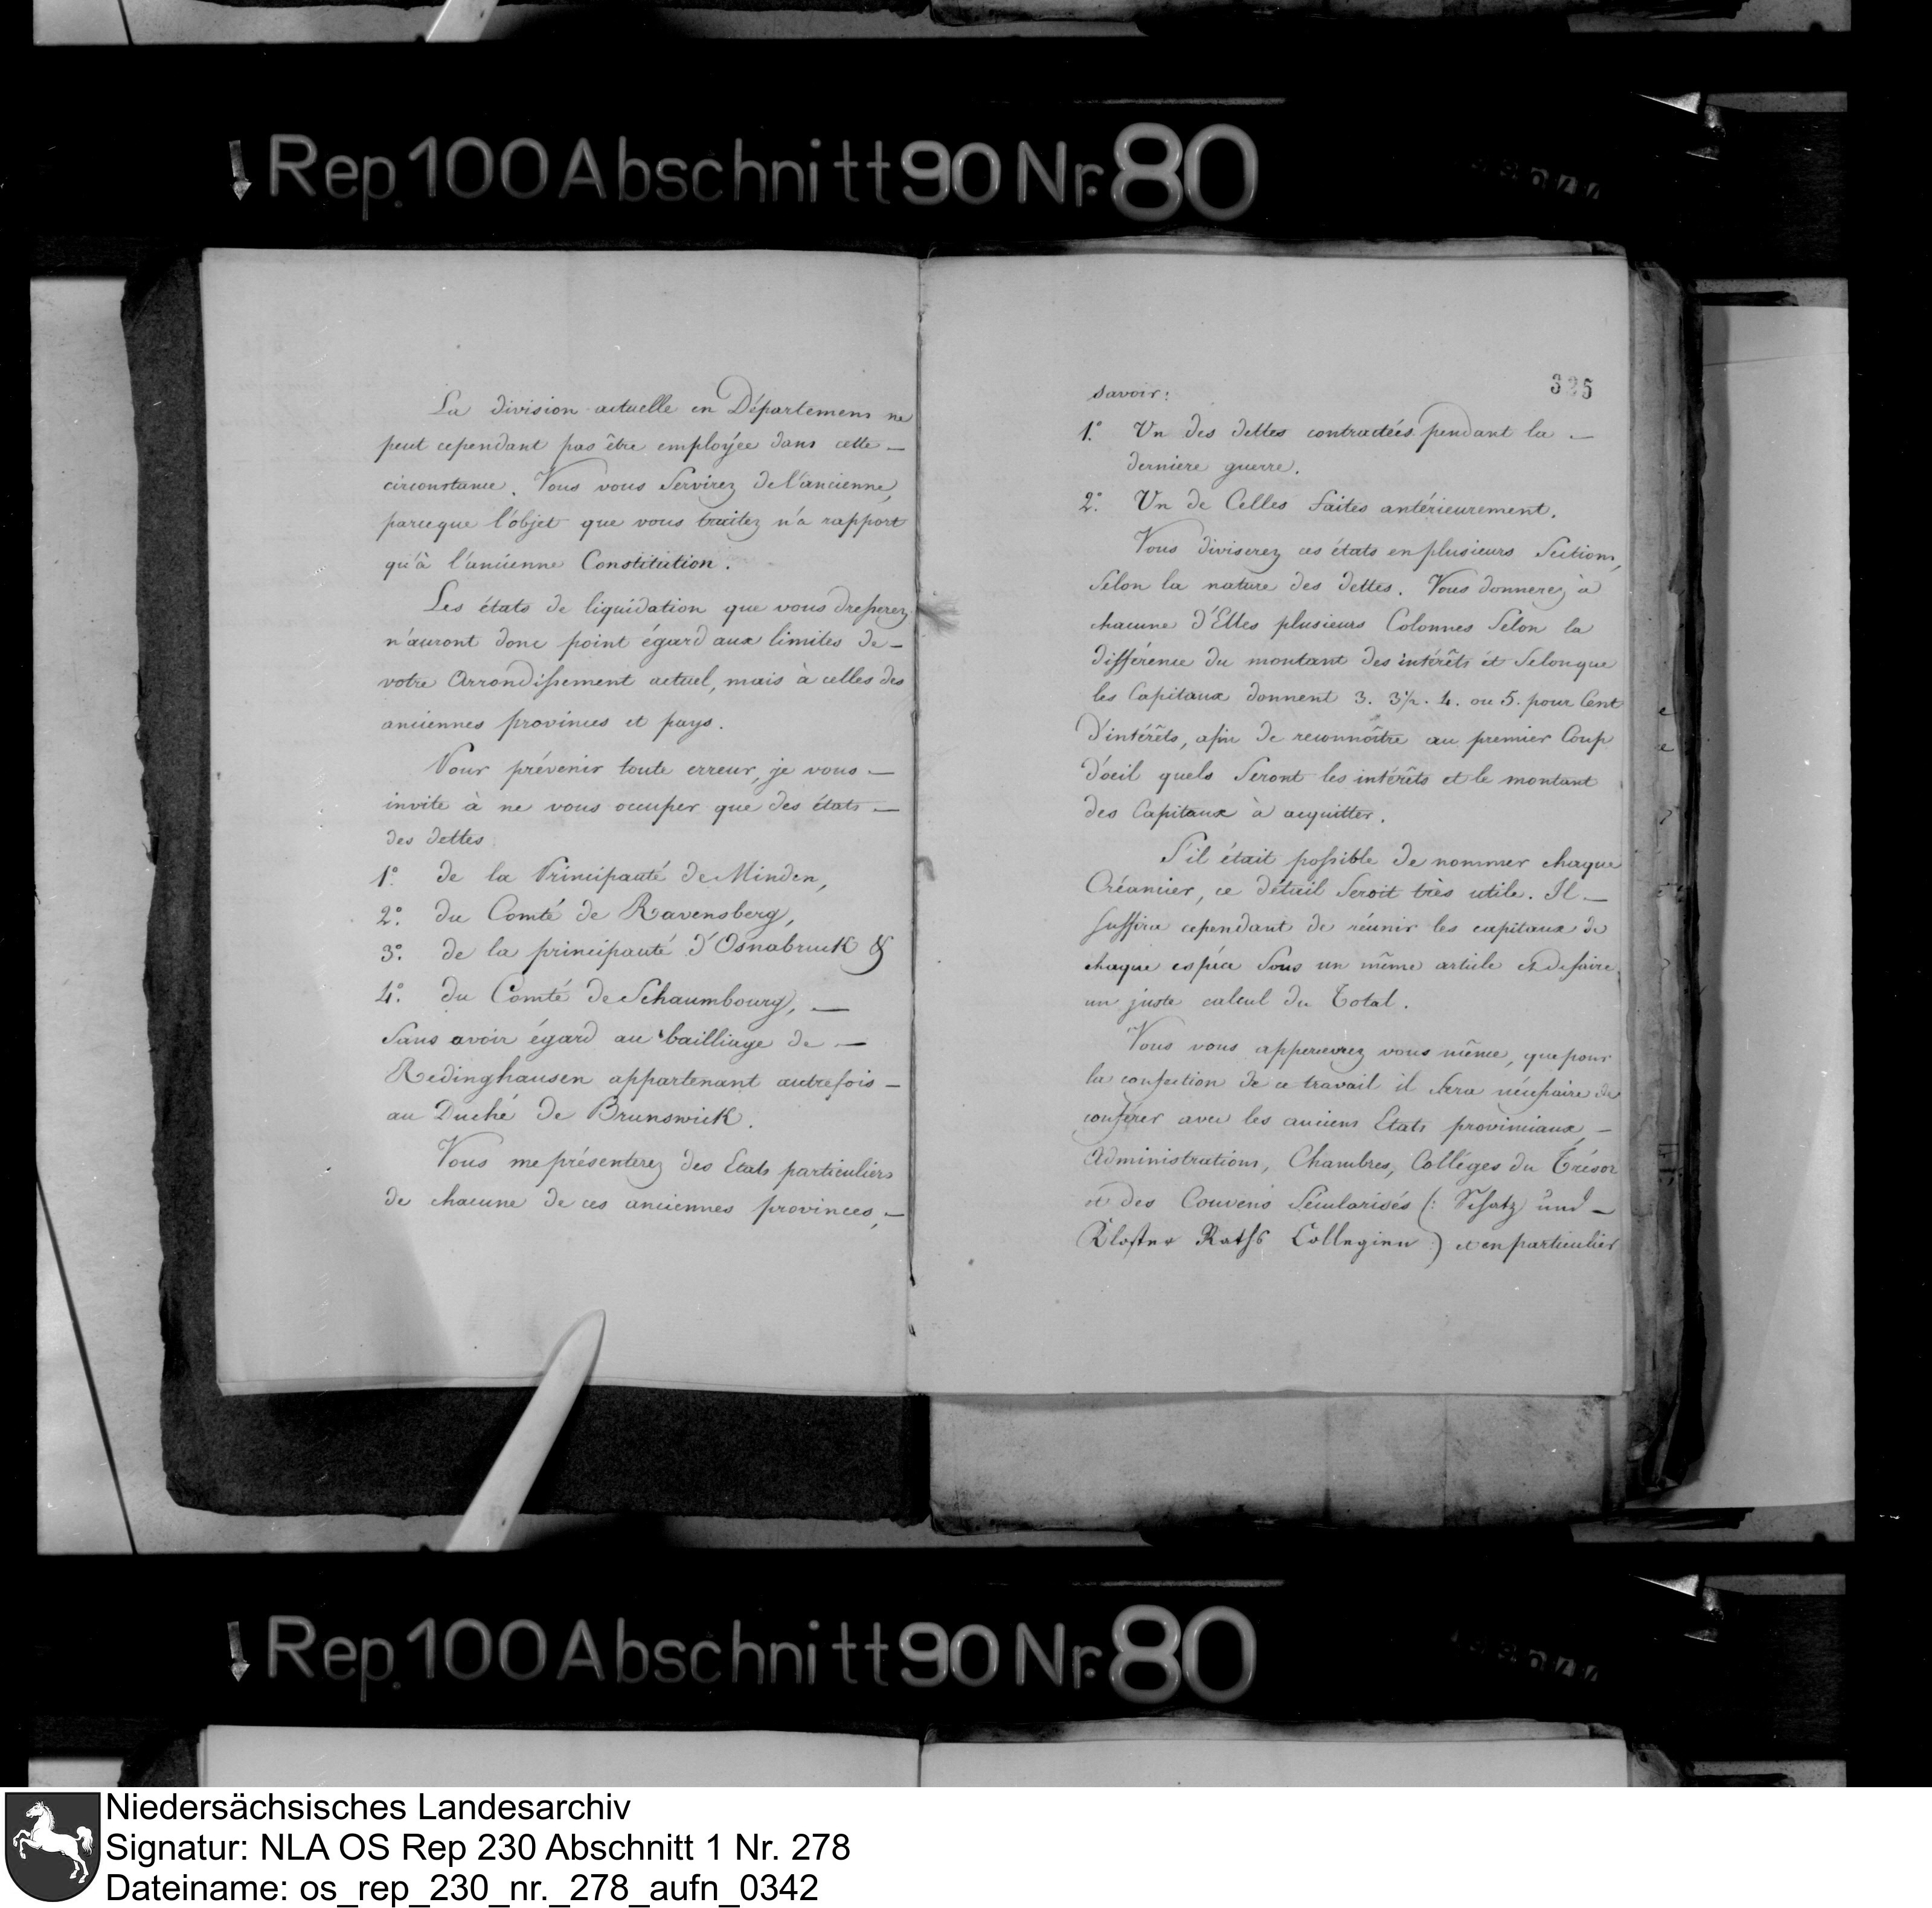 Rep. 100 Abschnitt 90 Nr. 80
La division actuelle en Départemens ne
peut cependant pas être employée dans cette —
circonstance. Vous vous Servirez de l'ancienne,
parceque l'objet que vous traitez n'a rapport
qu'à l'ancienne Constitution.
Les états de liquidation que vous dresserez
n'auront donc point égard aux limites de —
votre Arrondissement actuel, mais à celles des
anciennes provinces et pays.
Pour prévenir toute erreur, je vous —
invite à ne vous occuper que des états —
des dettes
1.° de la Principauté de Minden,
2.° du Comté de Ravensberg,
3.° de la principauté d'Osnabruck &
4.° du Comté de Schaumbourg, —
Sans avoir égard au bailliage de —
Redinghausen appartenant autrefois —
au Duché de Brunswick.
Vous me présenterez des Etats particuliers
de chacune de ces anciennes provinces, —
325
savoir:
1.° Un des dettes contractées pendant la —
derniere guerre.
2.° Un de Celles faites antérieurement.
Vous diviserez ces états en plusieurs Sections,
Selon la nature des dettes. Vous donnerez à
chacune d'Elles plusieurs Colonnes Selon la
différence du montant des intérêts et Selon que
les Capitaux donnent 3. 3½. 4. ou 5. pour Cent
d'intérêts, afin de reconnoître au premier Coup
d'oeil quels Seront les intérêts et le montant
des Capitaux à acquitter.
S'il était possible de nommer chaque
Créancier, ce détail Seroit très utile. Il —
Suffira cependant de réunir les capitaux de
chaque espéce Sous un même article et de faire
un juste calcul du Total.
Vous vous appercevrez vous même, que pour
la confection de ce travail il Sera nécessaire de
conférer avec les anciens Etats provinciaux, —
Administrations, Chambres, Colléges du Trésor
et des Couvens Sécularisés (: Schatz und —
Kloster Raths Collegien :) et en particulier
Rep. 100 Abschnitt 90 Nr. 80
Niedersächsisches Landesarchiv
Signatur: NLA OS Rep 230 Abschnitt 1 Nr. 278
Dateiname: os_rep_230_nr._278_aufn_0342